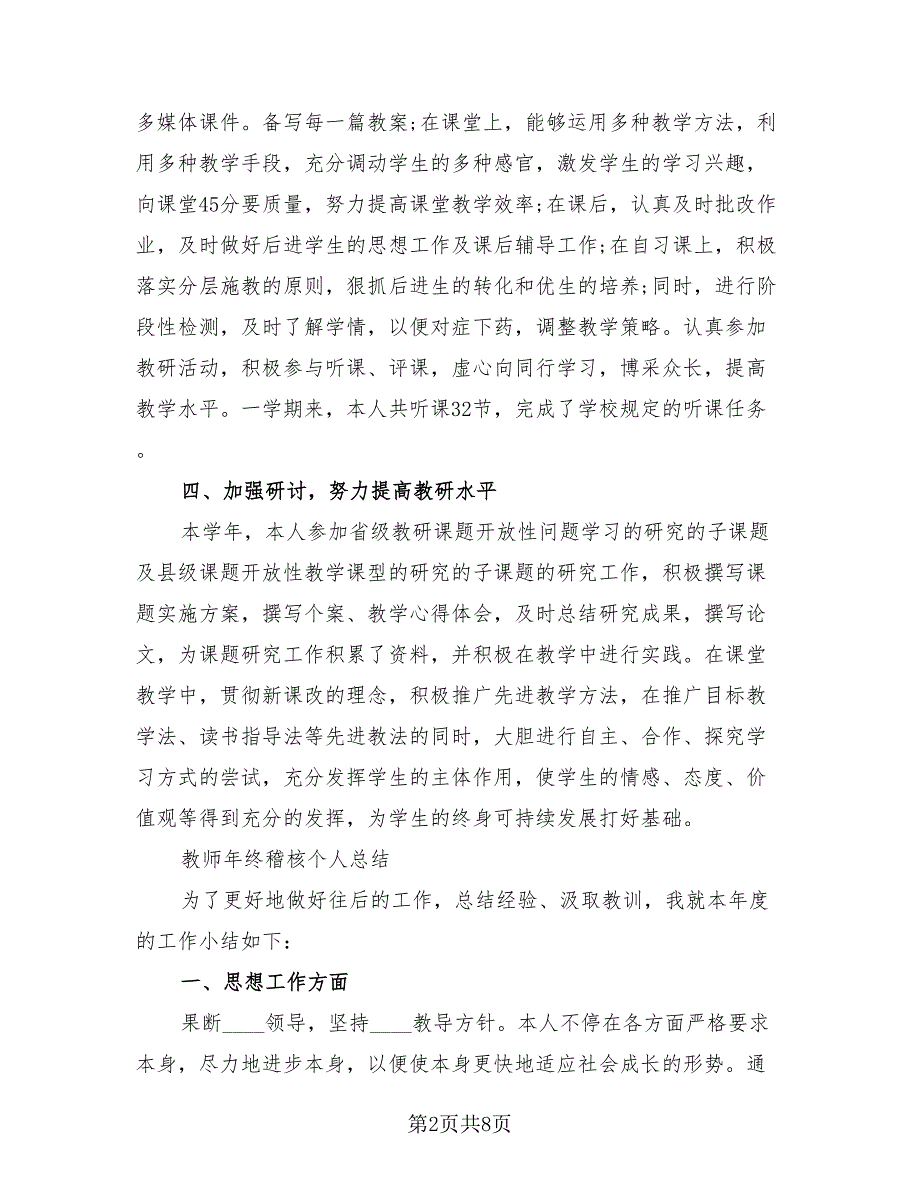 多媒体课件。备写每一篇教案;在课堂上，能够运用多种教学方法，利
用多种教学手段，充分调动学生的多种感官，激发学生的学习兴趣，
向课堂45分要质量，努力提高课堂教学效率;在课后，认真及时批改作
业，及时做好后进学生的思想工作及课后辅导工作;在自习课上，积极
落实分层施教的原则，狠抓后进生的转化和优生的培养;同时，进行阶
段性检测，及时了解学情，以便对症下药，调整教学策略。认真参加
教研活动，积极参与听课、评课，虚心向同行学习，博采众长，提高
教学水平。一学期来，本人共听课32节，完成了学校规定的听课任务
。
四、加强研讨，努力提高教研水平
本学年，本人参加省级教研课题开放性问题学习的研究的子课题
及县级课题开放性教学课型的研究的子课题的研究工作，积极撰写课
题实施方案，撰写个案、教学心得体会，及时总结研究成果，撰写论
文，为课题研究工作积累了资料，并积极在教学中进行实践。在课堂
教学中，贯彻新课改的理念，积极推广先进教学方法，在推广目标教
学法、读书指导法等先进教法的同时，大胆进行自主、合作、探究学
习方式的尝试，充分发挥学生的主体作用，使学生的情感、态度、价
值观等得到充分的发挥，为学生的终身可持续发展打好基础。
教师年终稽核个人总结
为了更好地做好往后的工作，总结经验、汲取教训，我就本年度
的工作小结如下：
一、思想工作方面
果断____领导，坚持____教导方针。本人不停在各方面严格要求
本身，尽力地进步本身，以便使本身更快地适应社会成长的形势。通
第2页共8页